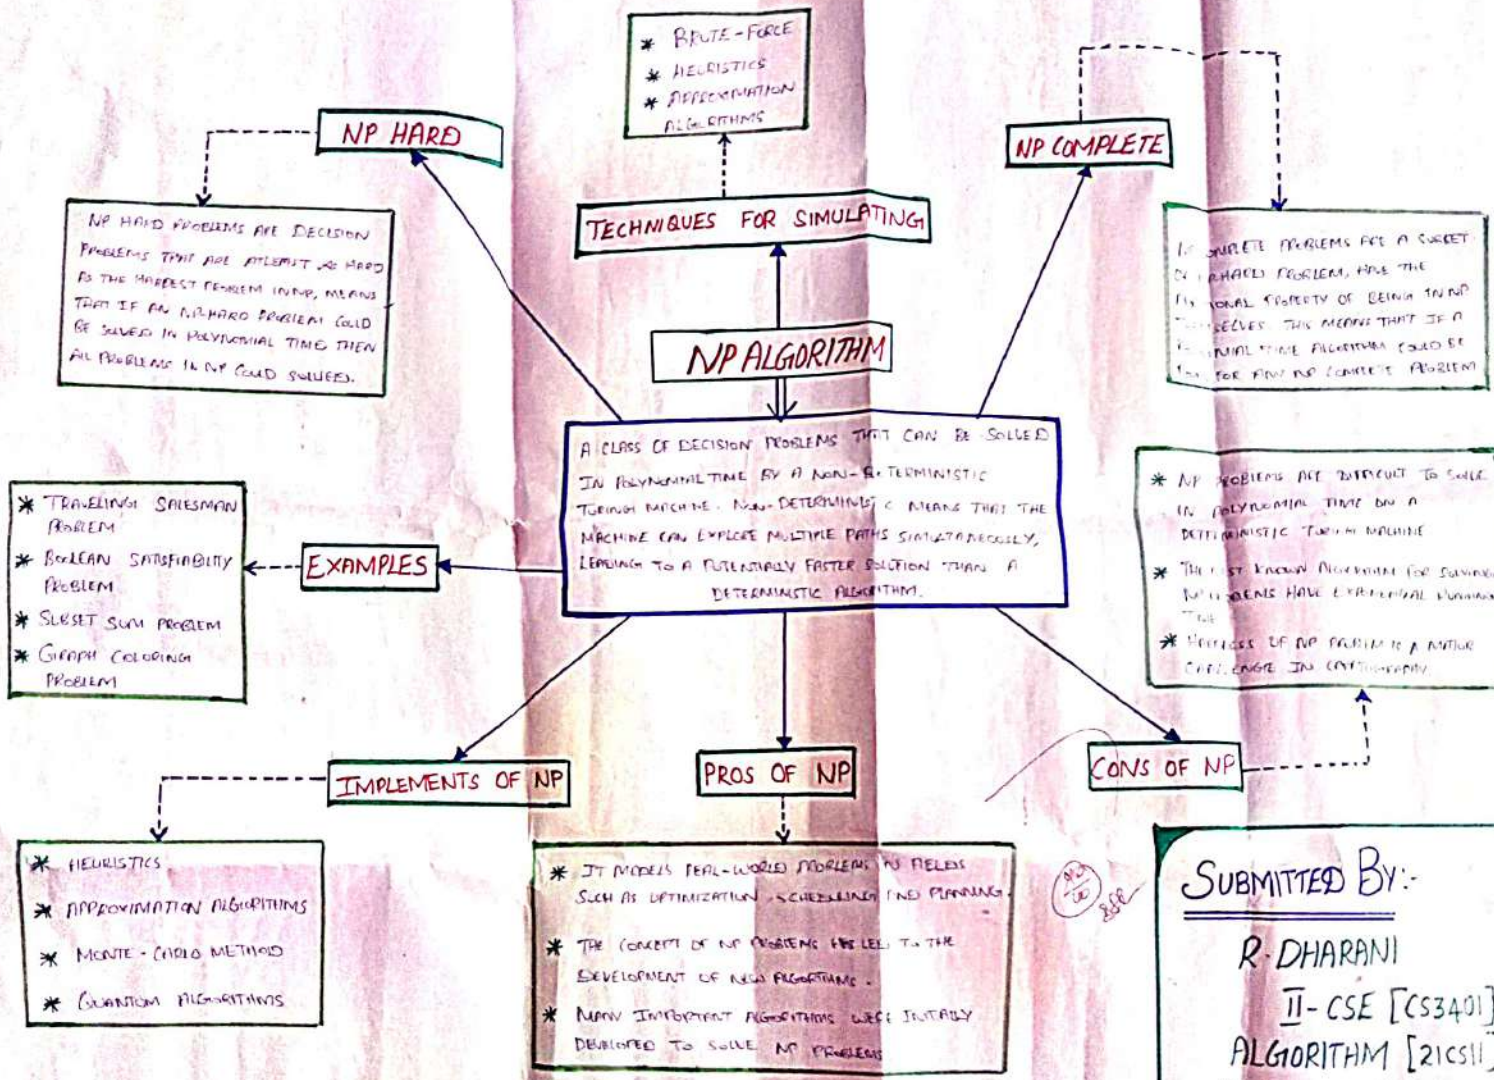 * BRUTE-FORCE
* HEURISTICS
* APPROXIMATION
ALGORITHMS
NP HARD
NP COMPLETE
TECHNIQUES FOR SIMULATING
NP HARD PROBLEMS ARE DECISION
PROBLEMS THAT ARE ATLEAST AS HARD
AS THE HARDEST PROBLEM IN NP, MEANS
THAT IF AN NP-HARD PROBLEM COULD
BE SOLVED IN POLYNOMIAL TIME THEN
ALL PROBLEMS IN NP COULD SOLVED.
COMPLETE PROBLEMS ARE A SUBSET
HARD PROBLEM, HAVE THE
PROPERTY OF BEING IN NP
THIS MEANS THAT IF A
TIME ALGORITHM COULD BE
FOR ANY NP COMPLETE PROBLEM
NP ALGORITHM
A CLASS OF DECISION PROBLEMS THAT CAN BE SOLVED
IN POLYNOMIAL TIME BY A NON-DETERMINISTIC
TURING MACHINE. NON-DETERMINISTIC MEANS THAT THE
MACHINE CAN EXPLORE MULTIPLE PATHS SIMULTANEOUSLY,
LEADING TO A POTENTIALLY FASTER SOLUTION THAN A
DETERMINISTIC ALGORITHM.
* TRAVELING SALESMAN
PROBLEM
* BOOLEAN SATISFIABILITY
PROBLEM
* SUBSET SUM PROBLEM
* GRAPH COLORING
PROBLEM
EXAMPLES
* NP PROBLEMS ARE DIFFICULT TO SOLVE
IN POLYNOMIAL TIME ON A
DETERMINISTIC TURING MACHINE
* THE BEST KNOWN ALGORITHM FOR SOLVING
HAVE EXPONENTIAL RUNNING
TIME
* HARDNESS OF NP PROBLEM IS A MAJOR
CHALLENGE IN CRYPTOGRAPHY.
IMPLEMENTS OF NP
PROS OF NP
CONS OF NP
* HEURISTICS
* APPROXIMATION ALGORITHMS
* MONTE-CARLO METHOD
* QUANTUM ALGORITHMS
* IT MODELS REAL-WORLD PROBLEMS IN FIELDS
SUCH AS OPTIMIZATION, SCHEDULING AND PLANNING.
* THE CONCEPT OF NP PROBLEMS HAS LED TO THE
DEVELOPMENT OF NEW ALGORITHMS.
* MANY IMPORTANT ALGORITHMS WERE INITIALLY
DEVELOPED TO SOLVE NP PROBLEMS
SUBMITTED BY:-
R. DHARANI
II-CSE [CS3401]
ALGORITHM [21CS11]